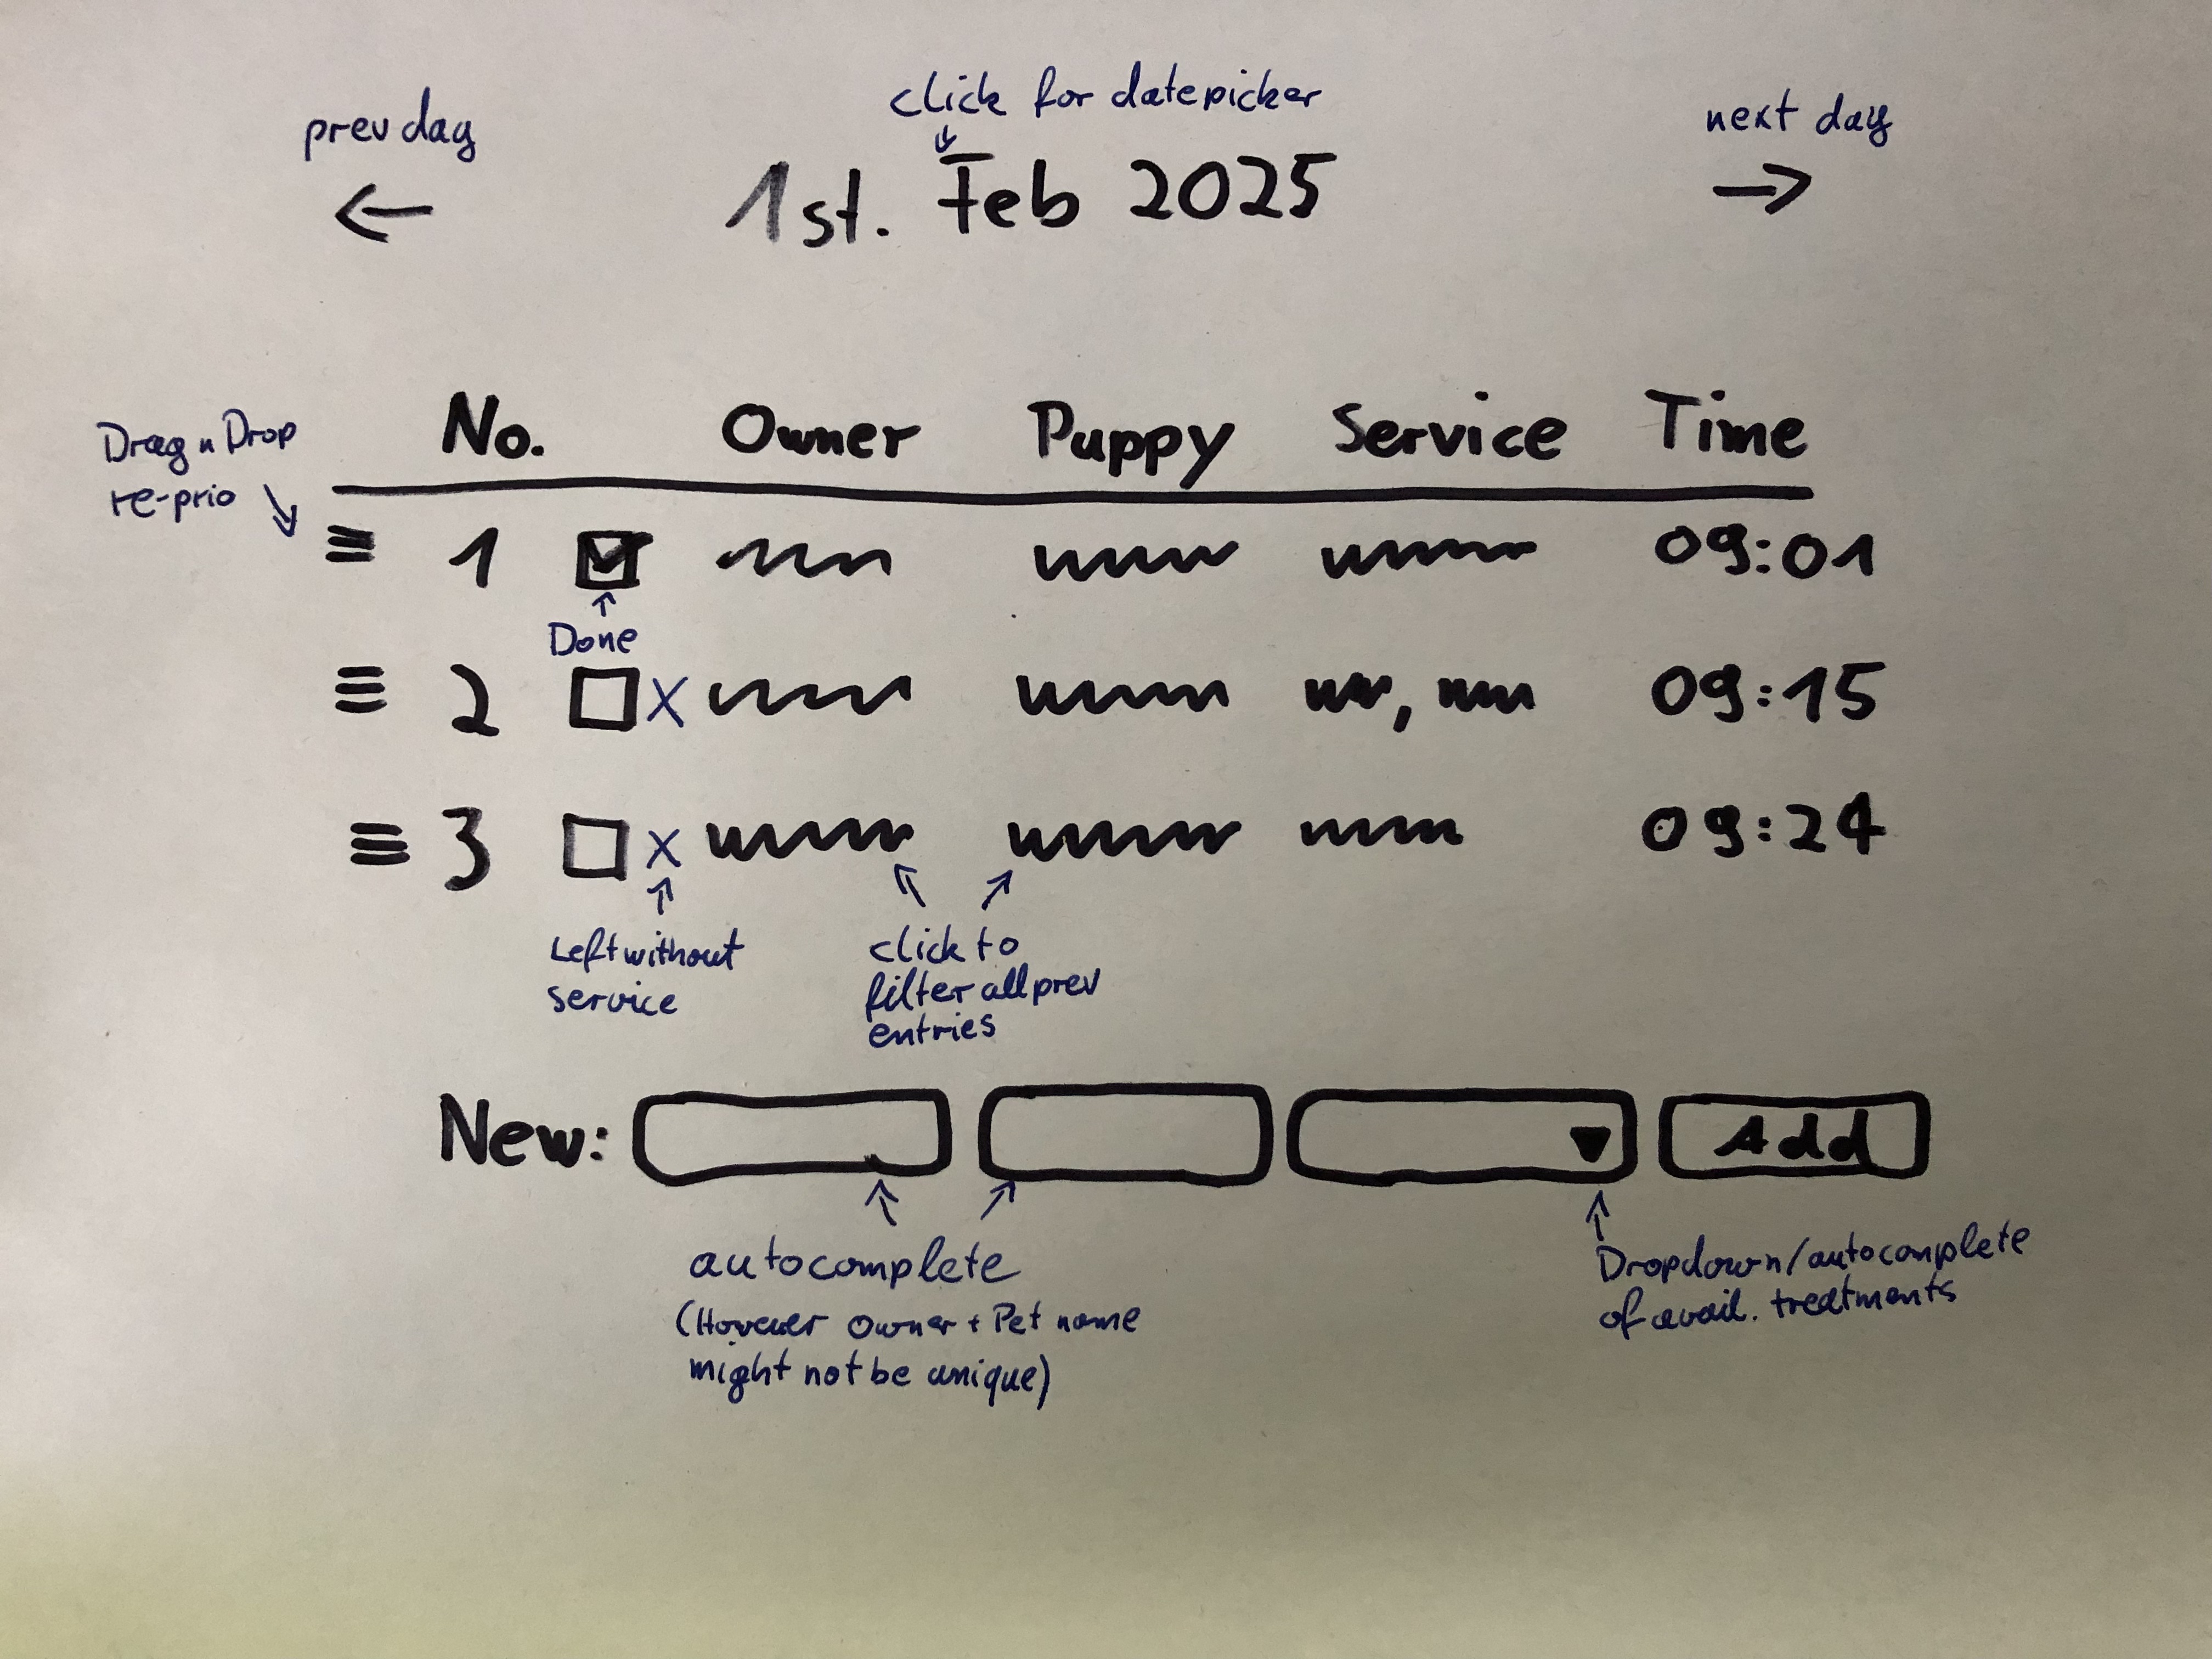 click for datepicker
prev day
next day
1st. Feb 2025
Drag n Drop
re-prio
No. Owner Puppy Service Time
1 09:01
Done
2 x , 09:15
3 x 09:24
Left without
service
click to
filter all prev
entries
New: Add
autocomplete
(However owner + Pet name
might not be unique)
Dropdown/autocomplete
of avail. treatments